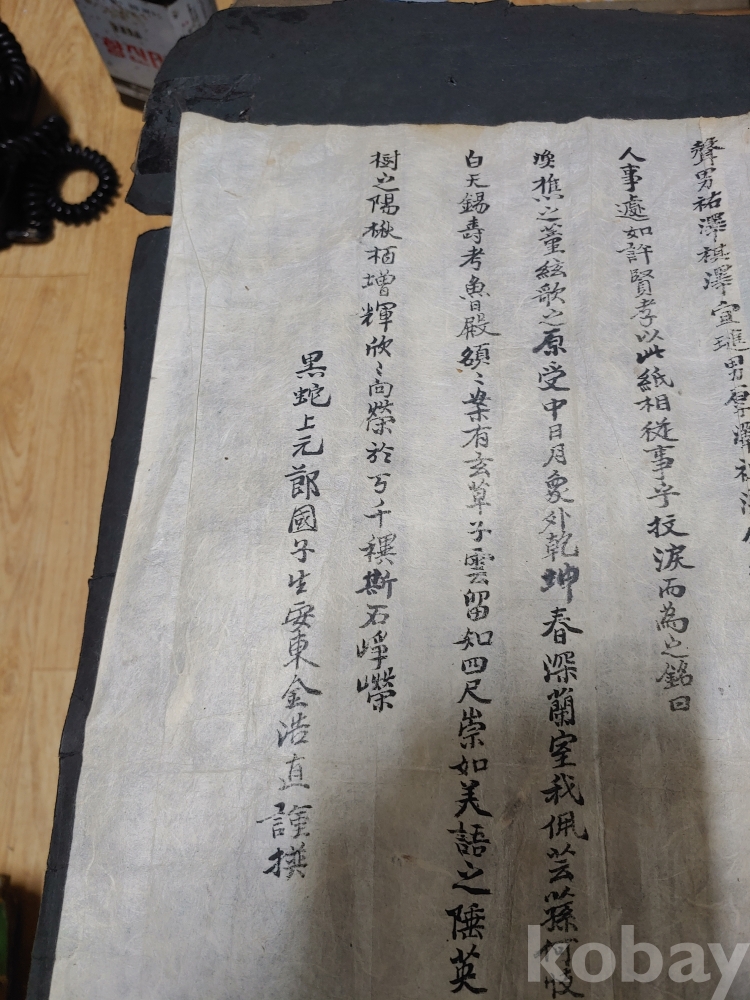 聲男祐澤祺澤宜璡男厚澤
人事處如許賢孝以此紙相從事乎抆淚而為之銘曰
煥樵之董絃歌之原受中日月象外乾坤春深蘭室我佩芸蓀何時
白天錫壽考魯殿額〻業有玄草子雲留知四尺崇如美語之陲英
樹之陽楸栢增輝欣〻向榮於万千禩斯石崢嶸
黑蛇上元節國子生安東金浩直謹撰
kobay